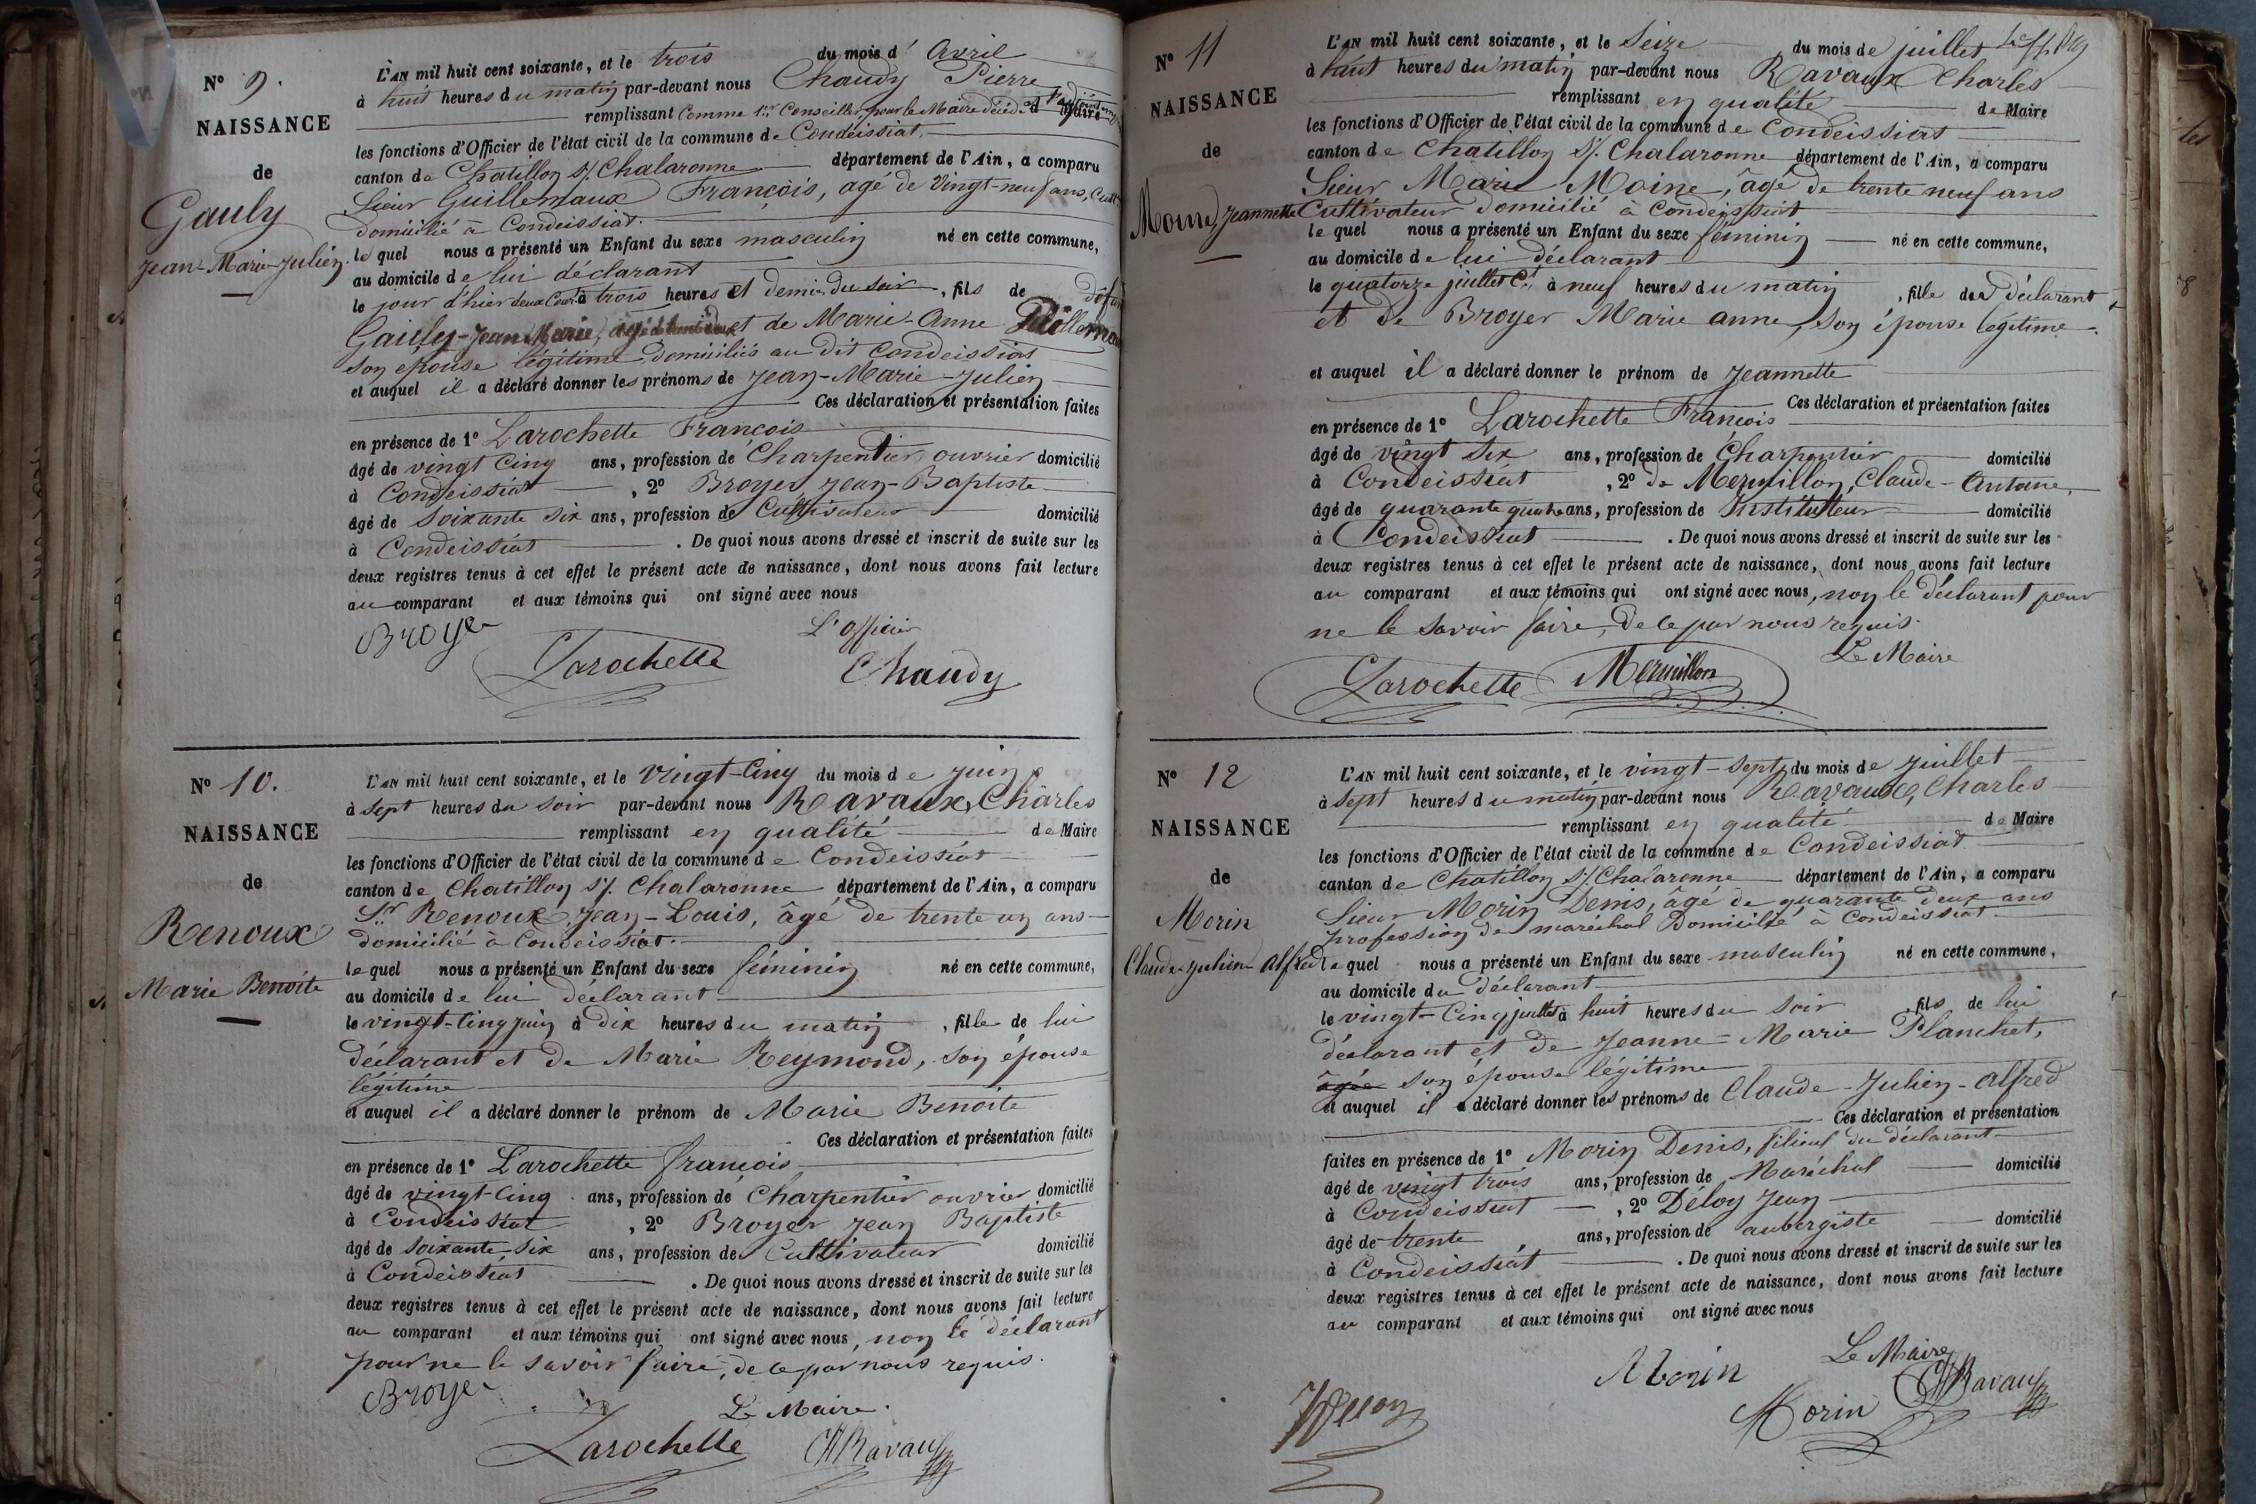 N° 9.
NAISSANCE
de
Gauly
Jean-Marie-Julien.
L'AN mil huit cent soixante, et le trois du mois d' Avril
à huit heures du matin par-devant nous Chaudy Pierre
remplissant comme 1er Conseiller, pour le Maire décédé
les fonctions d'Officier de l'état civil de la commune de Condeissiat
canton de Chatillon s/. Chalaronne département de l'Ain, a comparu
Sieur Guillemaux François, agé de Vingt-neuf ans,
domicilié à Condeissiat.
le quel nous a présenté un Enfant du sexe masculin né en cette commune,
au domicile de lui déclarant
le jour d'hier à trois heures et demie du soir, fils de défunt
Gauly-Jean Marie, et de Marie-Anne
son épouse légitime domiciliés au dit Condeissiat
et auquel il a déclaré donner les prénoms de Jean-Marie-Julien
Ces déclaration et présentation faites
en présence de 1° Larochette François
âgé de vingt cinq ans, profession de Charpentier ouvrier domicilié
à Condeissiat, 2° Broyer Jean-Baptiste
âgé de soixante six ans, profession de Cultivateur domicilié
à Condeissiat. De quoi nous avons dressé et inscrit de suite sur les
deux registres tenus à cet effet le présent acte de naissance, dont nous avons fait lecture
au comparant et aux témoins qui ont signé avec nous
Broyer
L'officier
Larochette
Chaudy
N° 10.
NAISSANCE
de
Renoux
Marie Benoite
L'AN mil huit cent soixante, et le vingt-cinq du mois de juin
à sept heures du soir par-devant nous Ravaux, Charles
remplissant en qualité de Maire
les fonctions d'Officier de l'état civil de la commune de Condeissiat
canton de Chatillon s/. Chalaronne département de l'Ain, a comparu
Sr Renoux Jean-Louis, âgé de trente un ans
domicilié à Condeissiat.
le quel nous a présenté un Enfant du sexe féminin né en cette commune,
au domicile de lui déclarant
le vingt-cinq juin à dix heures du matin, fille de lui
déclarant et de Marie Reymond, son épouse
légitime
et auquel il a déclaré donner le prénom de Marie Benoite
Ces déclaration et présentation faites
en présence de 1° Larochette françois
âgé de vingt-cinq ans, profession de Charpentier ouvrier domicilié
à Condeissiat, 2° Broyer Jean Baptiste
âgé de soixante six ans, profession de Cultivateur domicilié
à Condeissiat. De quoi nous avons dressé et inscrit de suite sur les
deux registres tenus à cet effet le présent acte de naissance, dont nous avons fait lecture
au comparant et aux témoins qui ont signé avec nous, non le déclarant
pour ne le savoir faire, de ce par nous requis.
Broyer
Le Maire.
Larochette
Ravaux
N° 11
NAISSANCE
de
Moine, Jeannette
L'AN mil huit cent soixante, et le seize du mois de juillet
à huit heures du matin par-devant nous Ravaux Charles
remplissant en qualité de Maire
les fonctions d'Officier de l'état civil de la commune de Condeissiat
canton de Chatillon s/. Chalaronne département de l'Ain, a comparu
Sieur Marie Moine, âgé de trente neuf ans
Cultivateur domicilié à Condeissiat
le quel nous a présenté un Enfant du sexe féminin né en cette commune,
au domicile de lui déclarant
le quatorze juillet ct, à neuf heures du matin, fille du déclarant
et de Broyer Marie anne, son épouse légitime.
et auquel il a déclaré donner le prénom de Jeannette
Ces déclaration et présentation faites
en présence de 1° Larochette François
âgé de vingt six ans, profession de Charpentier domicilié
à Condeissiat, 2° de Mermillon, Claude-Antoine,
âgé de quarante quatre ans, profession de Instituteur domicilié
à Condeissiat. De quoi nous avons dressé et inscrit de suite sur les
deux registres tenus à cet effet le présent acte de naissance, dont nous avons fait lecture
au comparant et aux témoins qui ont signé avec nous, non le déclarant pour
ne le savoir faire, de ce par nous requis.
Le Maire
Larochette
Mermillon
N° 12
NAISSANCE
de
Morin
Claude-Julien-Alfred
L'AN mil huit cent soixante, et le vingt-sept du mois de juillet
à sept heures du matin par-devant nous Ravaux, Charles
remplissant en qualité de Maire
les fonctions d'Officier de l'état civil de la commune de Condeissiat
canton de Chatillon s/. Chalaronne département de l'Ain, a comparu
Sieur Morin Denis, âgé de quarante deux ans
profession de maréchal Domicilié à Condeissiat
le quel nous a présenté un Enfant du sexe masculin né en cette commune,
au domicile du déclarant
le vingt-cinq juillet à huit heures du soir, fils de lui
déclarant et de Jeanne-Marie Planchet,
âgée son épouse légitime
et auquel il a déclaré donner les prénoms de Claude-Julien-Alfred
Ces déclaration et présentation
faites en présence de 1° Morin Denis, filleul du déclarant
âgé de vingt trois ans, profession de Maréchal domicilié
à Condeissiat, 2° Déloy Jean
âgé de trente ans, profession de aubergiste domicilié
à Condeissiat. De quoi nous avons dressé et inscrit de suite sur les
deux registres tenus à cet effet le présent acte de naissance, dont nous avons fait lecture
au comparant et aux témoins qui ont signé avec nous
Le Maire
Morin
Ravaux
Morin